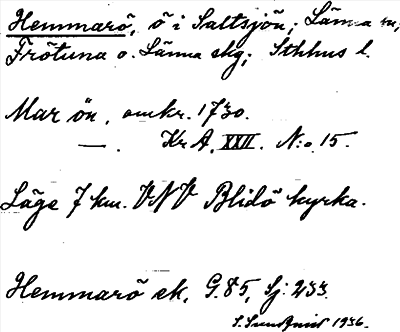 Hemmarö, ö i Saltsjön; Länna sn,
Frötuna o. Länna skg; Sthlms l.
Mar ön, omkr. 1730.
— . Kr A. XXII. N:o 15.
Läge 7 km. VNV Blidö kyrka.
Hemmarö ek, G. 85, Sj: 233.
S. 1936.